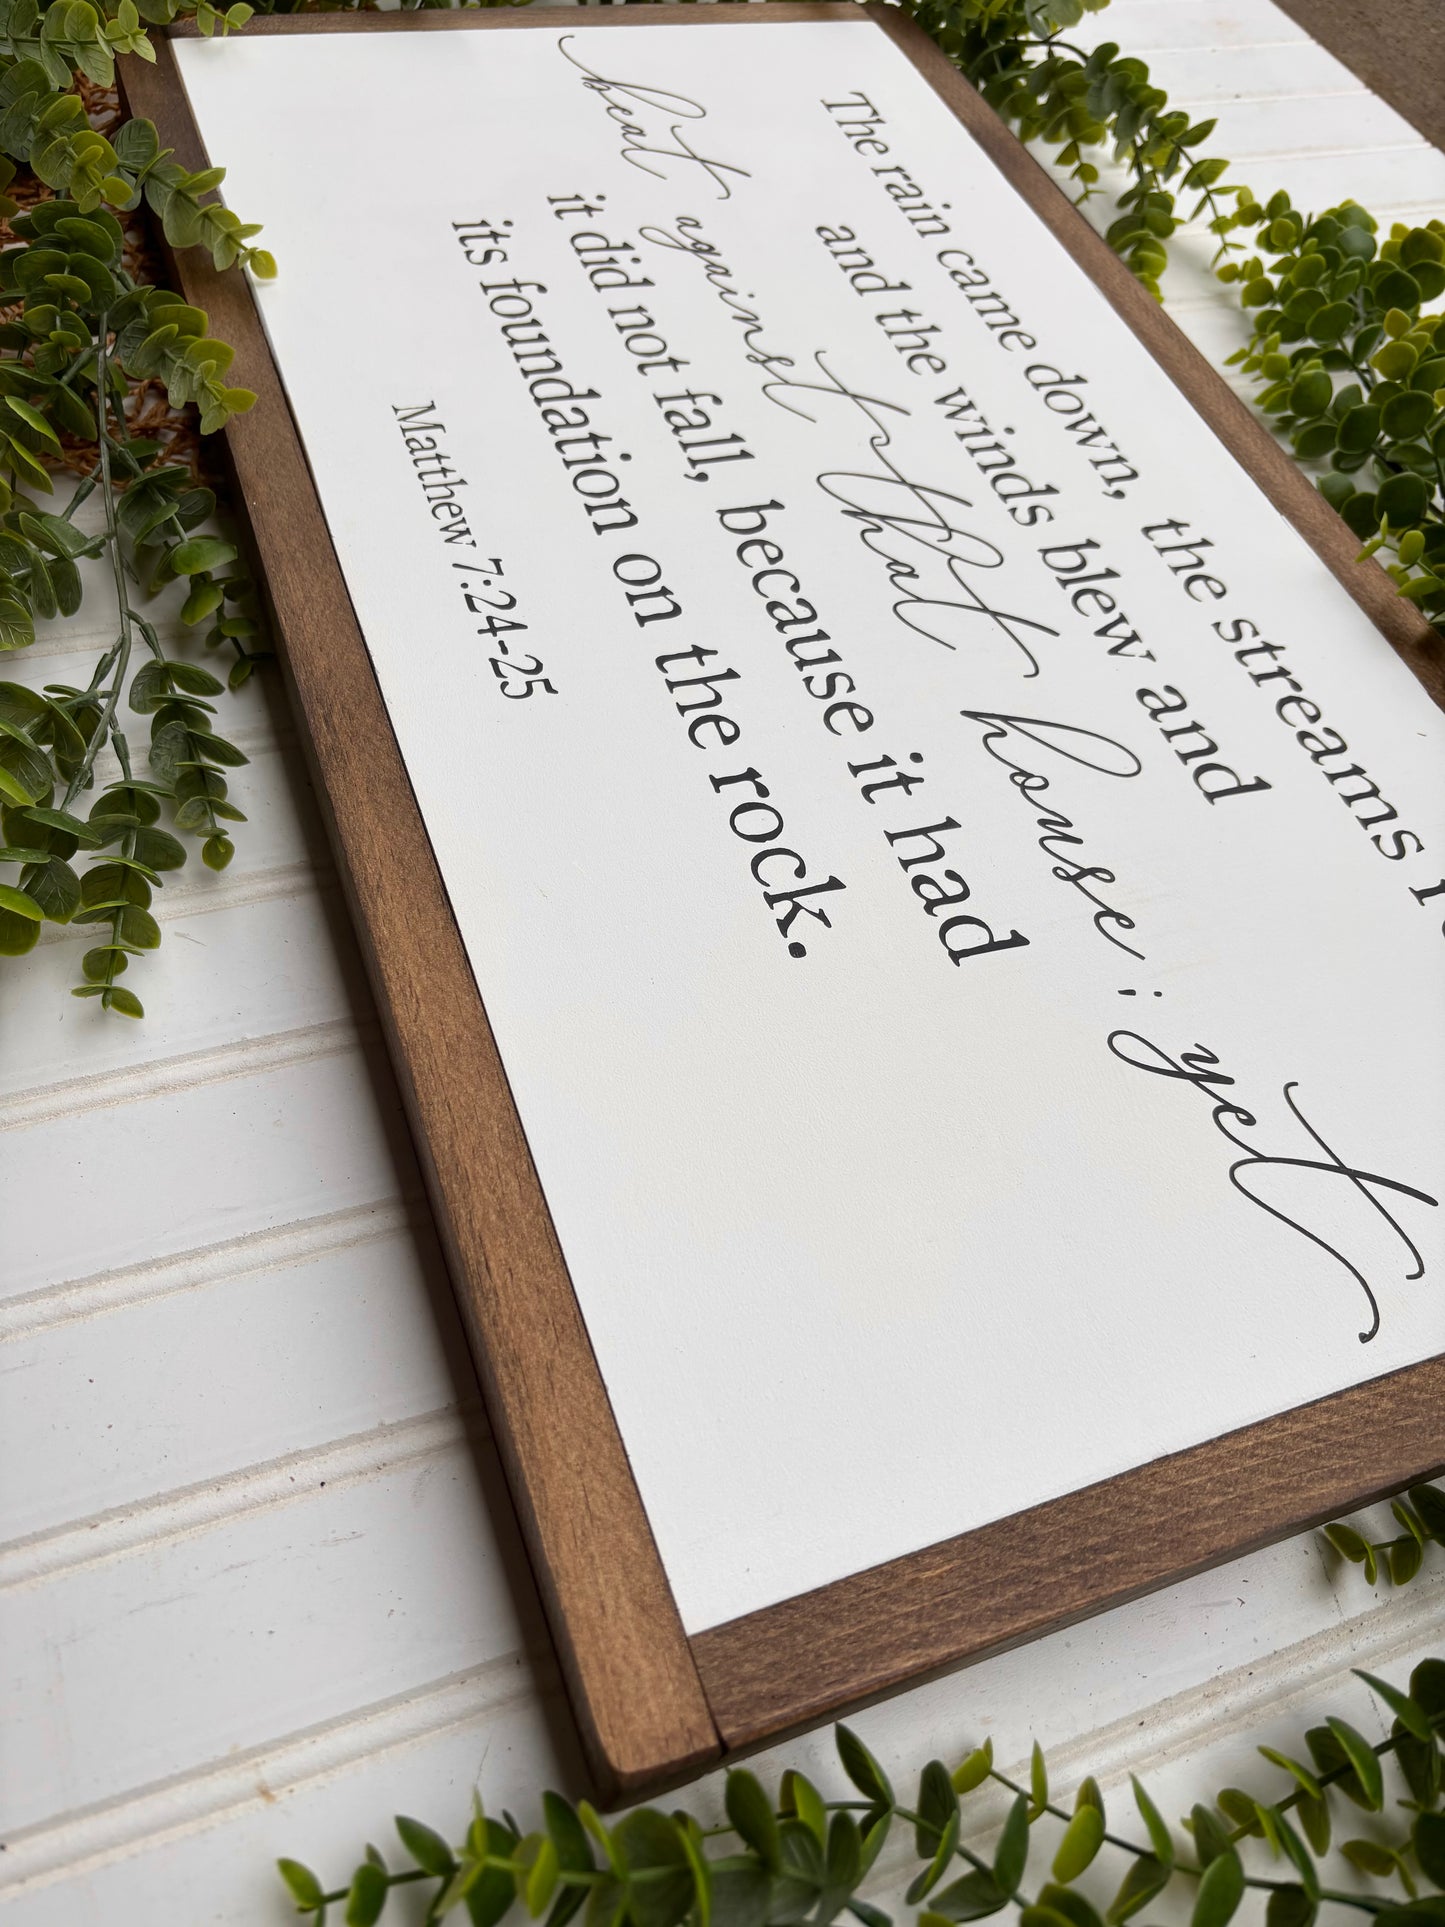 The rain came down, the streams
and the winds blew and
beat against that house; yet
it did not fall, because it had
its foundation on the rock.
Matthew 7:24-25